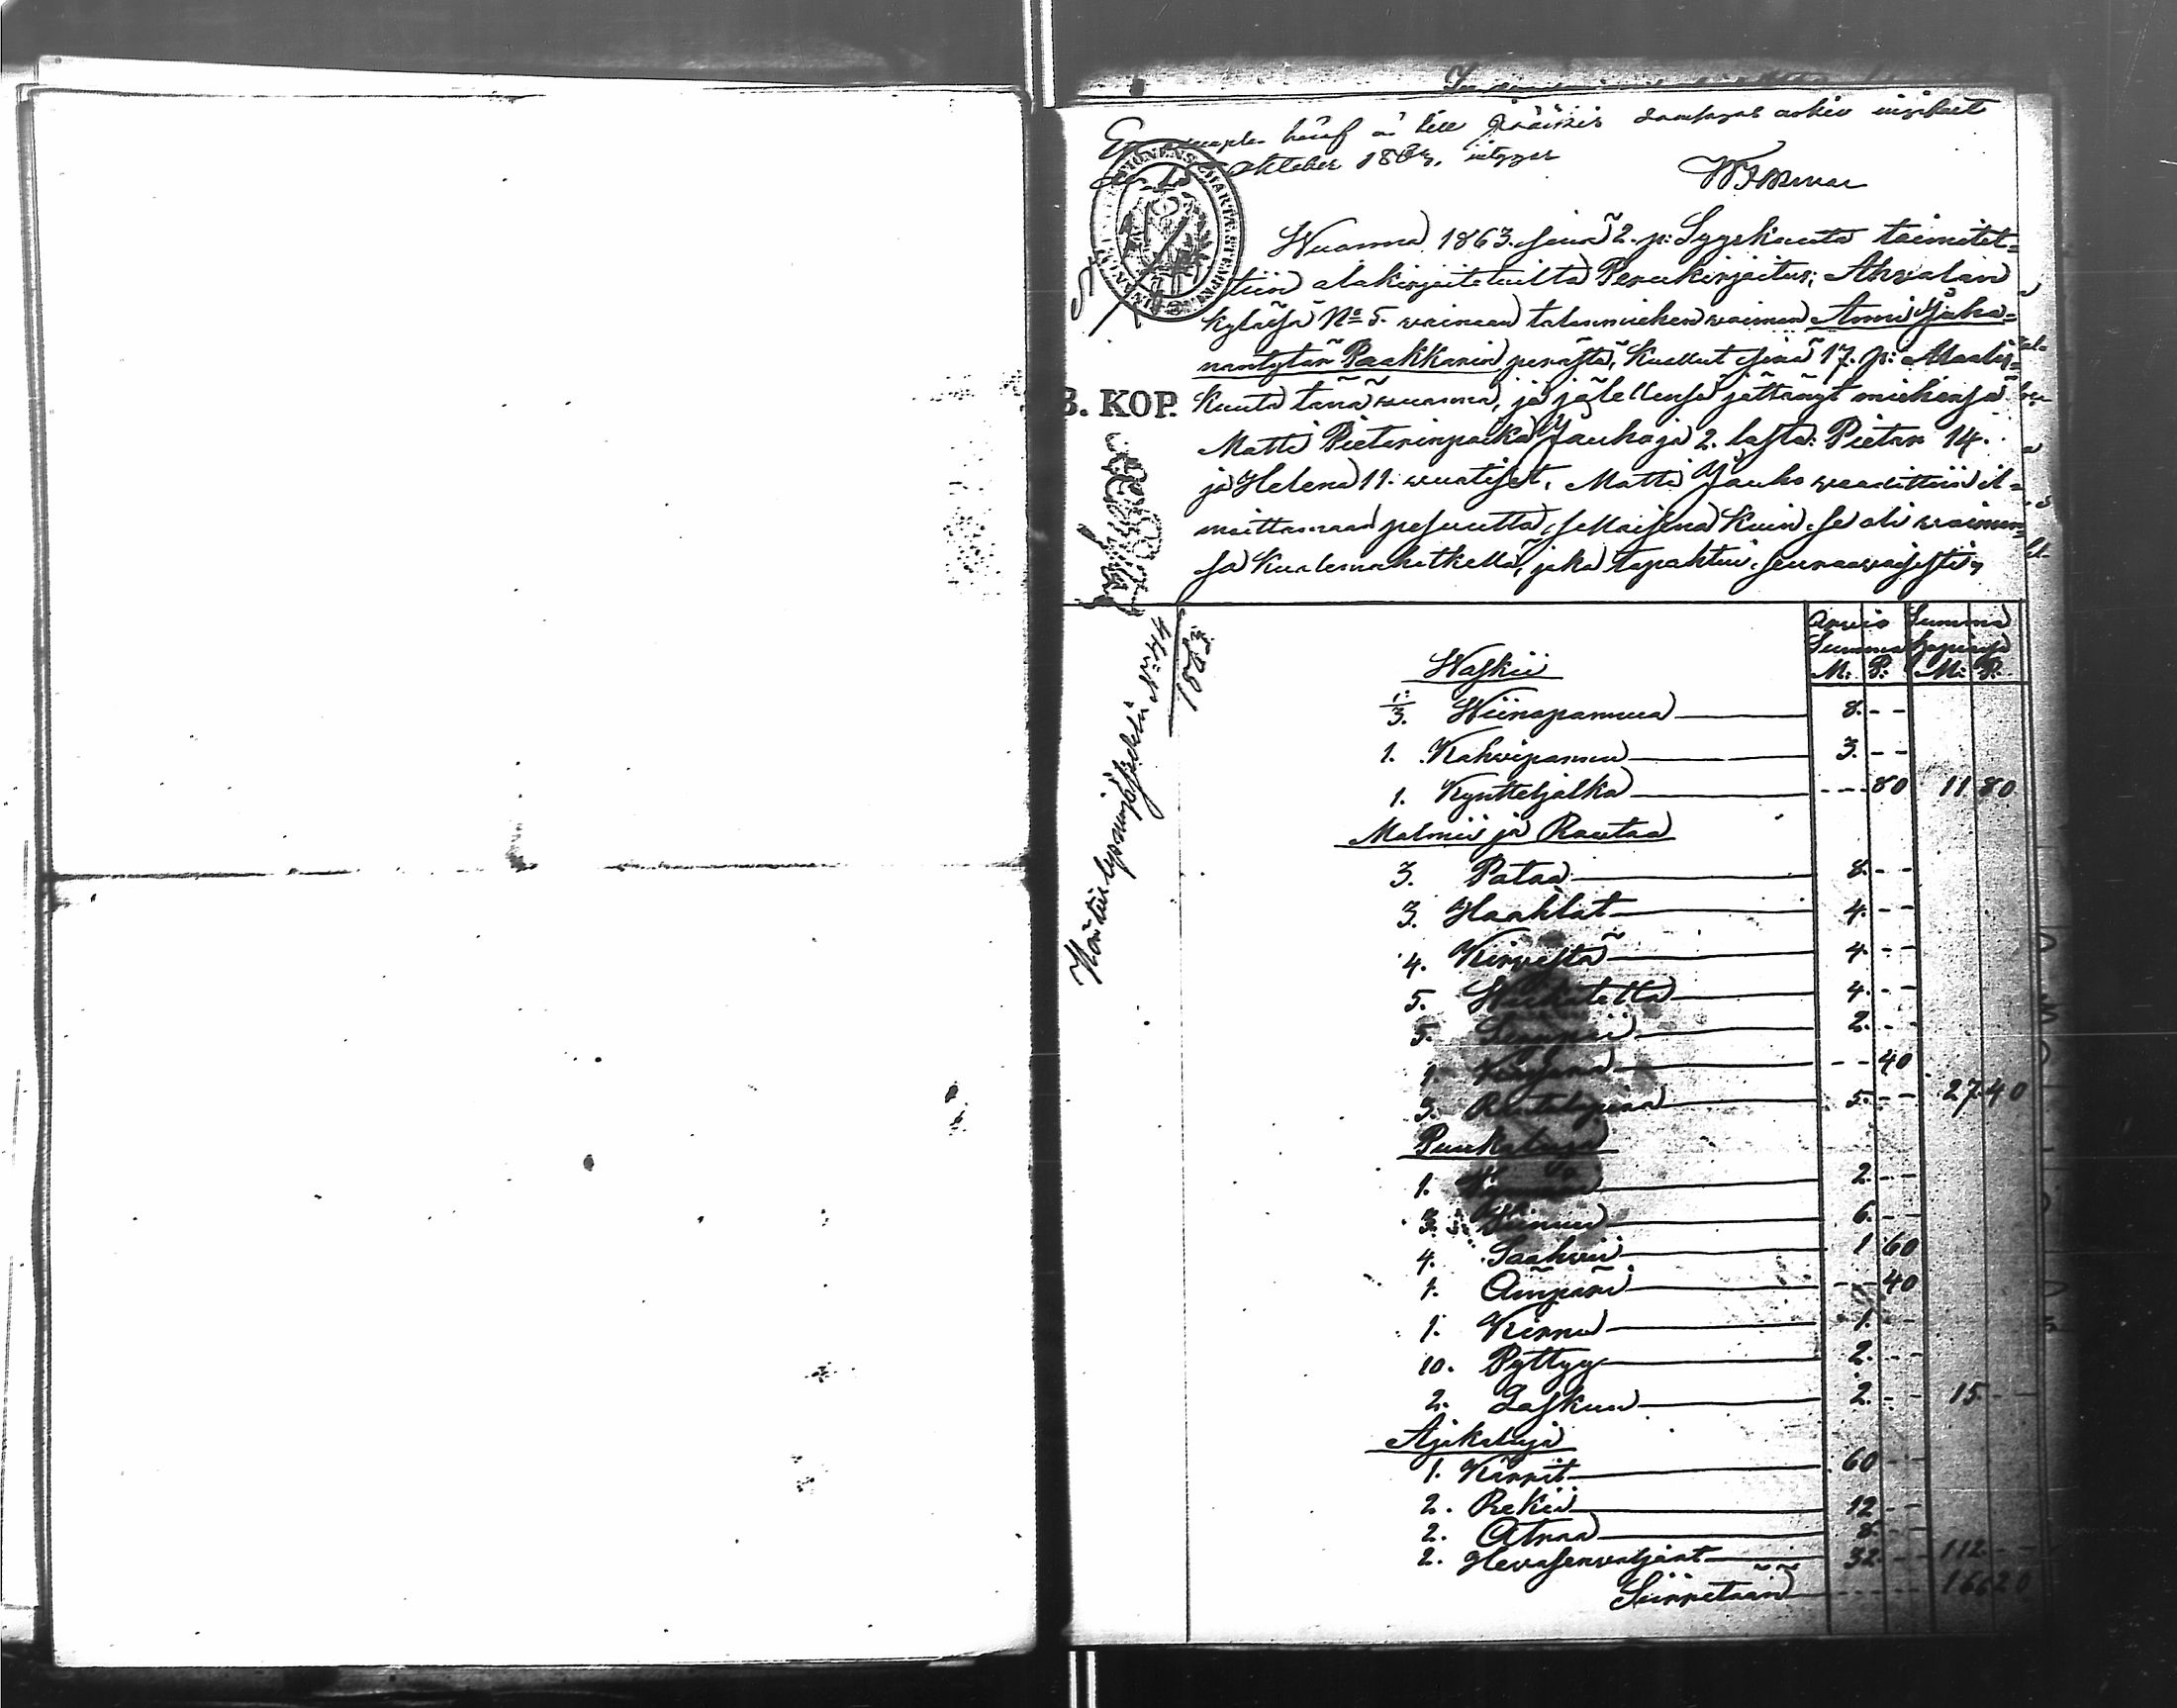 häraf är till Jääskis domsagas arkiv insändt
Oktober 1863, intygar
Wuonna 1863. sinä 2. p: Syyskuuta toimitet=
tiin alakirjoitetuilta Perukirjoitus, Ahwolan
kylässä No 5. wainaan talonmiehen waimon Anni Juha=
nantytär Paakkarin perästä, kuollut sinä 17. p: Maalis=
kuuta tänä wuonna, ja jälellensä jättänyt miehensä
Matti Pietarinpoika Jauho ja 2. lasta: Pietar 14.
ja Helena 11. wuotiset, Matti Jauho waadittiin il=
moittamaan pesuutta, sellaisena kuin se oli waimon=
sa kuolemahetkellä, joka tapahtui seuraawaisesti,
3. KOP.
No 44
1863
Arwio Summa
Summa
M: P: M: P:
Waskii
1/3. Wiinapannua 8. - -
1. Kahvipannu 3. - -
1. Kyntteljalka - - 80 11 80
Malmii ja Rautaa
3. Pataa 8. - -
3. Haahlat 4. - -
4. Kirvestä 4. - -
5. Wiikatetta 4. - -
5. Sirppii 2. - -
1. - - 40
3. 5. - - 27 40
Puukaluja
1. 2. - -
3. 6. - -
4. Saahvii 1 60
1. Ämpäri - - 40
1. Kirnu 1. -
10. Pyttyy 2. - -
2. 2. - - 15 - -
Ajokaluja
1. Kärrit 60 - -
2. Rekii 12 - -
2. Atraa 8. - -
2. Hevosenvaljaat 32. - - 112 - -
Siirretään - - - 166 20